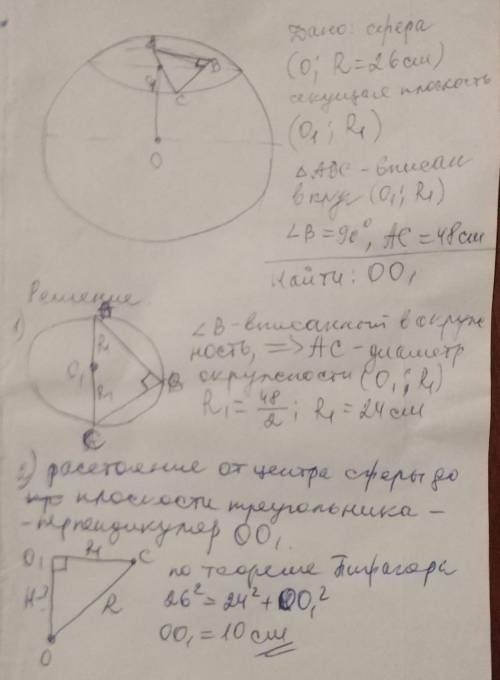 Дано: сфера
(O; R=26см)
секущая плоскость
(O₁; R₁)
△ABC - вписан
в круг (O₁; R₁)
∠B = 90°, AC = 48см
Найти: OO₁
A
B
C
O
Решение
1)
A
R₁
O₁
R₁
B
C
∠B - вписанный в окруж
ность, => AC - диаметр
окружности (O₁; R₁)
R₁ = 48/2; R₁ = 24см
2) расстояние от центра сферы до
плоскости треугольника -
- перпендикуляр OO₁
O₁
C
R
O
по теореме Пифагора
26² = 24² + OO₁²
OO₁ = 10 см